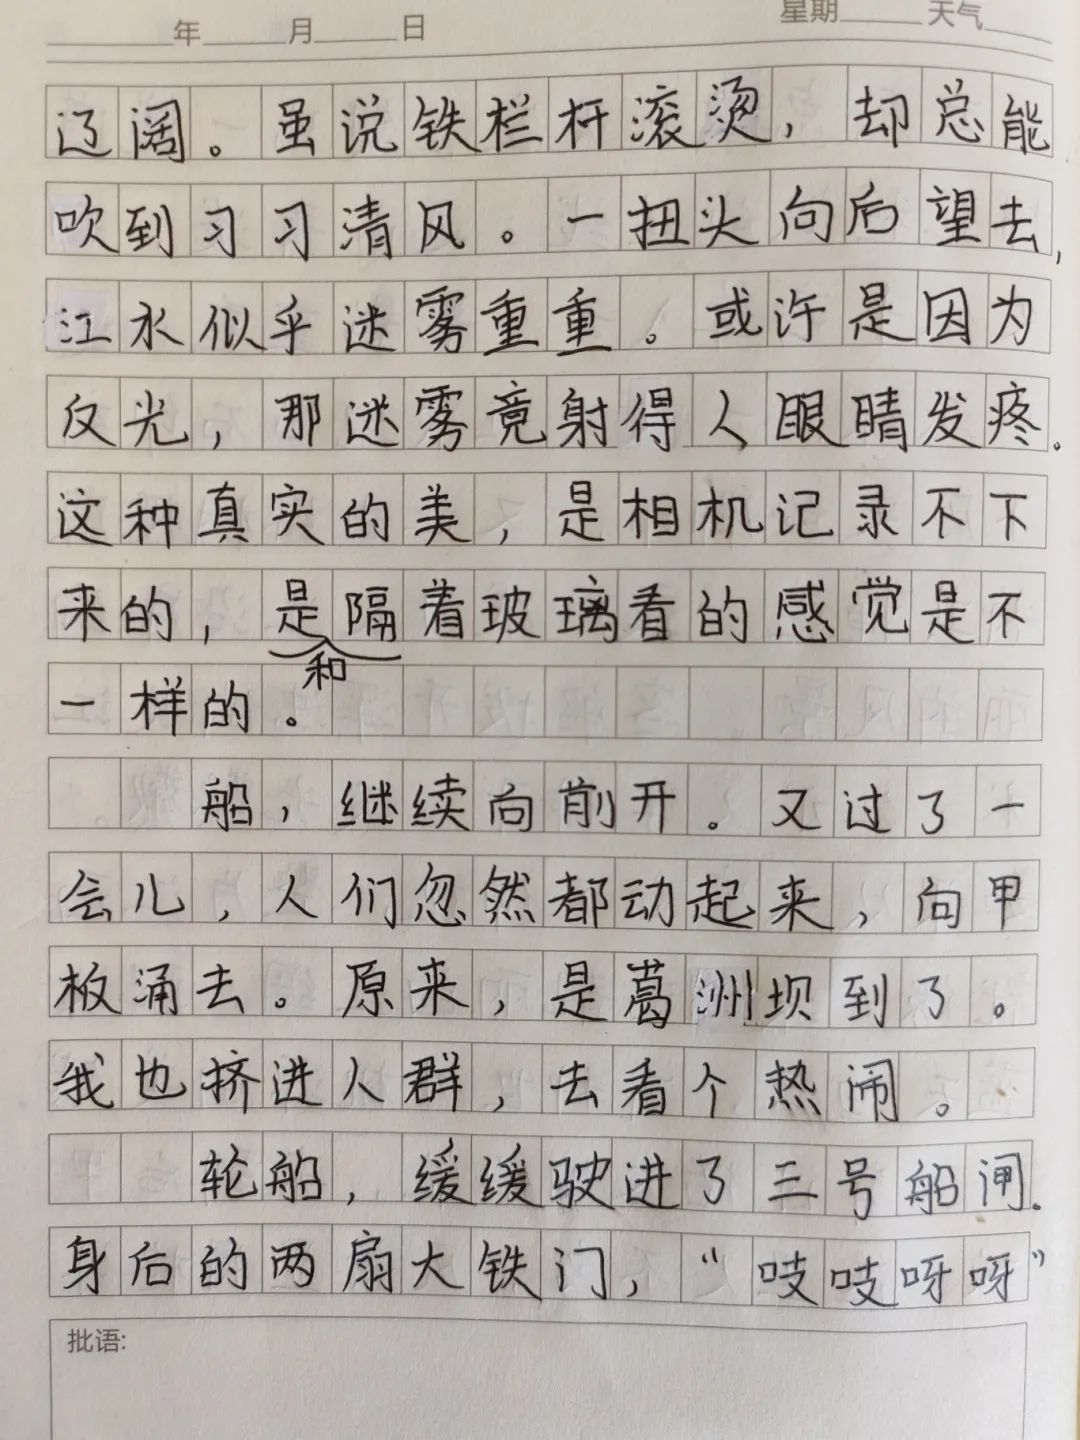 年 月 日 星期 天气
辽阔。虽说铁栏杆滚烫，却总能
吹到习习清风。一扭头向后望去，
江水似乎迷雾重重。或许是因为
反光，那迷雾竟射得人眼睛发疼。
这种真实的美，是相机记录不下
来的，是隔着玻璃看的感觉是不
和
一样的。
船，继续向前开。又过了一
会儿，人们忽然都动起来，向甲
板涌去。原来，是葛洲坝到了。
我也挤进人群，去看个热闹。
轮船，缓缓驶进了三号船闸。
身后的两扇大铁门，“吱吱呀呀”
批语: